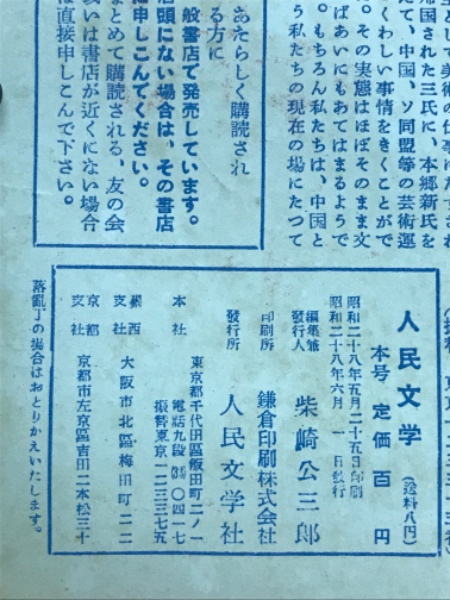 望として美術の仕事にたずさわ
帰国された三氏に、本郷新氏を
えて、中国、ソ同盟等の芸術運
くわしい事情をきくことがで
た。その実態はほぼそのまま文
ばあいにもあてはまるようで
。もちろん私たちは、中国と
う私たちの現在の場にたつて
あたらしく購読され
る方に
般書店で発売しています。
店頭にない場合は、その書店
は申しこんでください。
まとめて購読される、友の会
或いは書店が近くにない場合
は直接申しこんで下さい。
人民文学 (送料八円)
本号 定価 百円
昭和二十八年五月二十五日印刷
昭和二十八年六月 一日発行
編集兼発行人 柴崎公三郎
印刷所 鎌倉印刷株式会社
発行所 人民文学社
本社 東京都千代田區飯田町二ノ一
電話九段(33)〇四一七
振替東京一二三三七五
関西支社 大阪市北區梅田町二二
京都支社 京都市左京區吉田二本松三十
落乱丁の場合はおとりかえいたします。